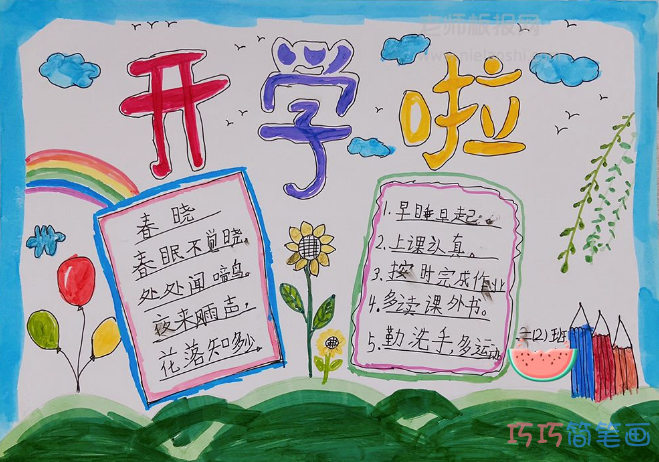 老师板报网
开学啦
春晓
春眠不觉晓。
处处闻啼鸟。
夜来风雨声，
花落知多少。
1.早睡早起。
2.上课认真。
3.按时完成作业
4.多读课外书。
5.勤洗手,多运动
(2)班
巧巧简笔画